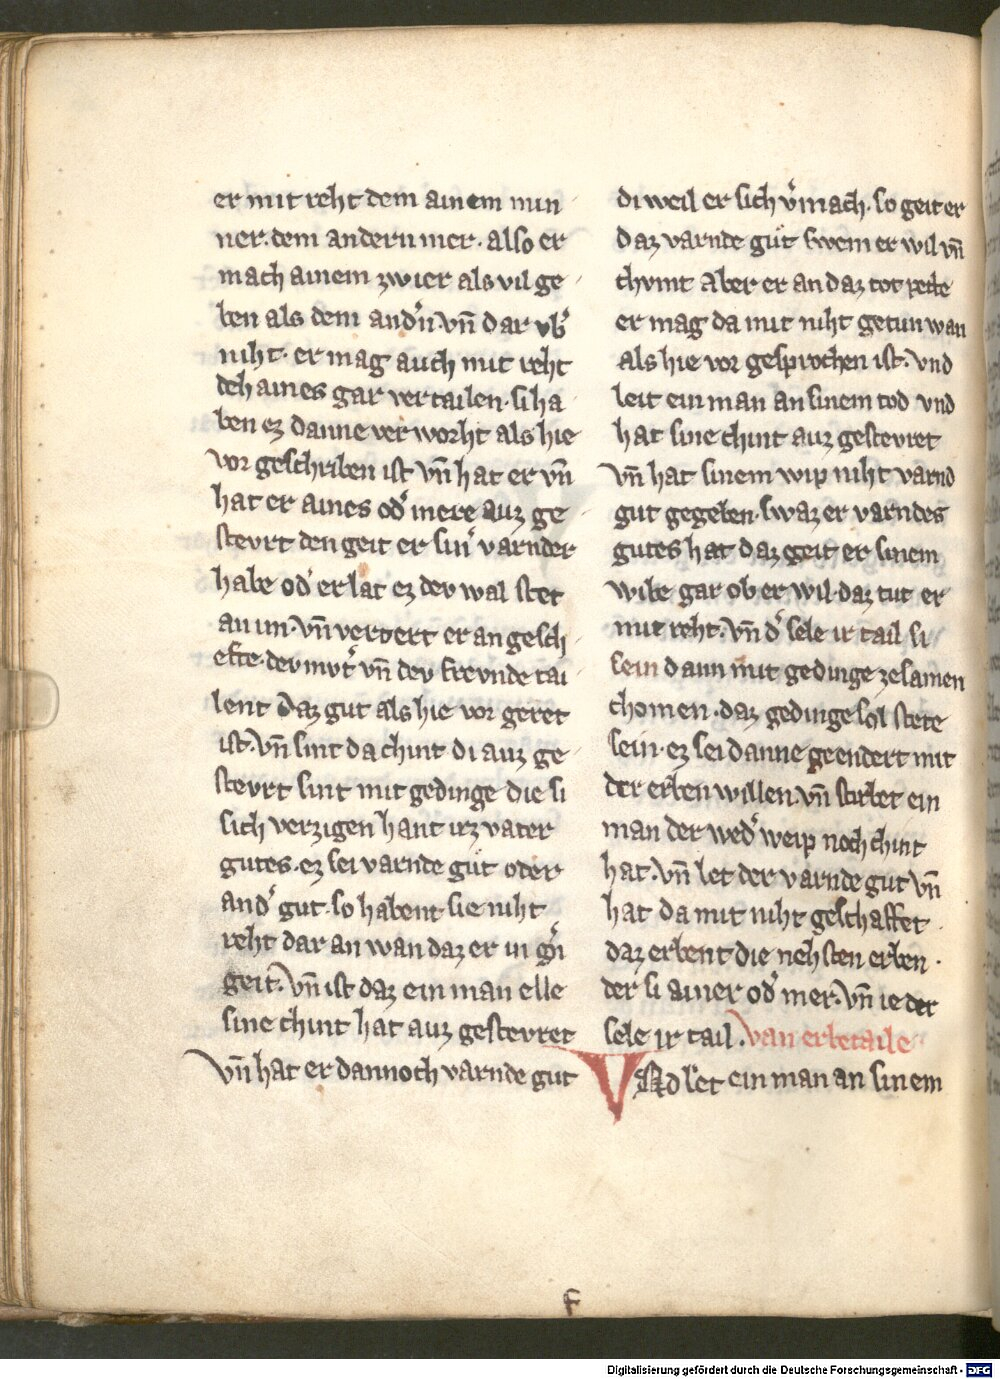 er mit reht dem ainem min
ner. dem andern mer. also er
mach ainem zwier als vil ge
ben als dem and̓n vn̄ dar vb̓
niht. er mag auch mit reht
dehaines gar vertailen. si ha
ben ez danne verworht als hie
vor geschriben ist vn̄ hat er vn̄
hat er aines od̓ mere auz ge
stevrt den geit er sin̓ varnder
habe od̓ er lat ez der wal stet
an im. vn̄ ververt er an gesch
efte. der mvt̓ vn̄ der frevnde tai
lent daz gut als hie vor geret
ist. vn̄ sint da chint di auz ge
stevrt sint mit gedinge die si
sich verzigen hant irz vater
gutes. ez sei varnde gut oder
and̓ gut. so habent sie niht
reht dar an wan daz er in
geit. vn̄ ist daz ein man elle
sine chint hat auz gestevret
vn̄ hat er dannoch varnde gut
di weil er sich v̓mach. so geit er
daz varnde gut swem er wil vn̄
chvmt Aber er an daz tot pette
er mag da mit niht getun wan
als hie vor gesprochen ist. vnd
leit ein man an sinem tod vnd
hat sine chint auz gestevret
vn̄ hat sinem wip niht varnd
gut gegeben. swaz er varndes
gutes hat daz geit er sinem
wibe gar ob er wil. daz tut er
mit reht. vn̄ d̓ sele ir tail si
sein dann mit gedinge zesamen
chomen. daz gedinge sol stete
sein. ez sei danne geendert mit
der erben willen. vn̄ stirbet ein
man der wed̓ weip noch chint
hat. vn̄ let der varnde gut vn̄
hat da mit niht geschaffet.
daz erbent die nehsten erben.
der si ainer od̓ mer. vn̄ ie der
sele ir tail. van erbetaile
VNd let ein man an sinem
f
Digitalisierung gefördert durch die Deutsche Forschungsgemeinschaft - DFG